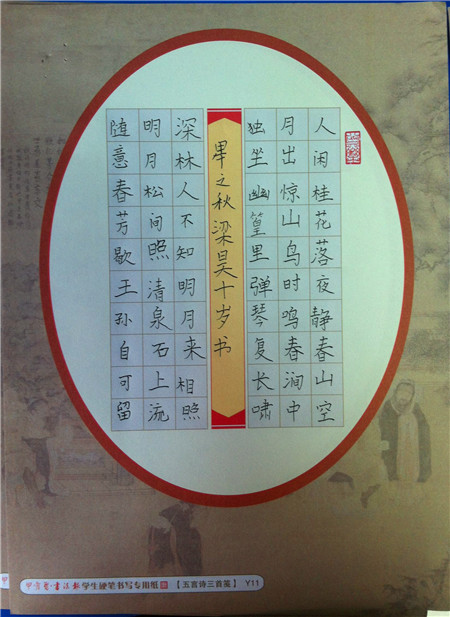 人闲桂花落夜静春山空
月出惊山鸟时鸣春涧中
独坐幽篁里弹琴复长啸
畢之秋梁昊十岁书
深林人不知明月来相照
明月松间照清泉石上流
随意春芳歇王孙自可留
书法报学生硬笔书写专用纸【五言诗三首笺】 Y11